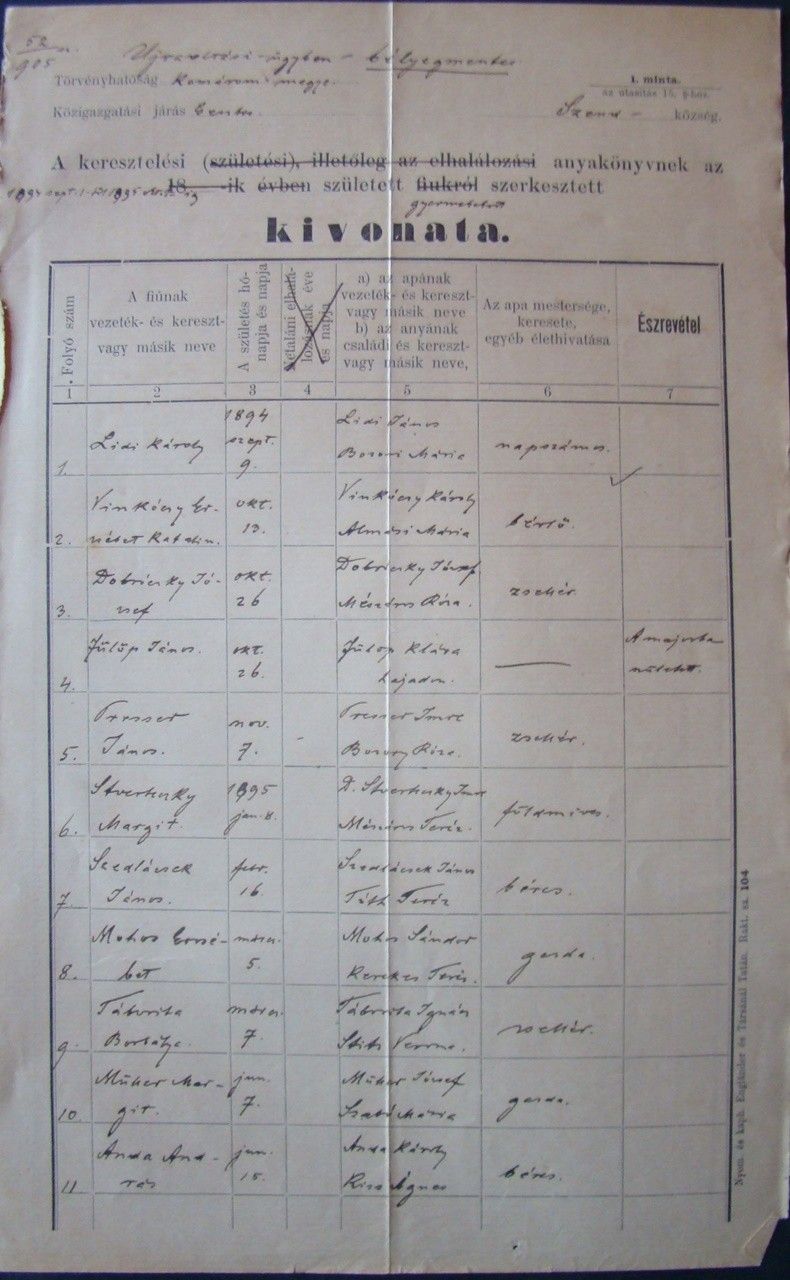 52
905
Ujraoltási ügyben – bélyegmentes
Törvényhatóság Komárom megye.
1. minta.
az utasítás 15. §-hoz.
Közigazgatási járás
Szend – község.
A keresztelési (születési), illetőleg az elhalálozási anyakönyvnek az
18 -ik évben született fiukról szerkesztett
gyermekekről
kivonata.
Folyó szám
A fiúnak vezeték- és kereszt- vagy másik neve
A születés hónapja és napja
Netaláni elhalálozásnak éve és napja
a) az apának vezeték- és kereszt- vagy másik neve b) az anyának családi és kereszt- vagy másik neve,
Az apa mestersége, keresete, egyéb élethivatása
Észrevétel
1 2 3 4 5 6 7
1. Lidi Károly 1894 szept. 9. Lidi János Mária napszámos.
2. Vinkóczy Erzsébet Katalin. okt. 13. Vinkóczy Károly Almási Mária bérlő.
3. Dobriczky József okt. 26 Dobriczky József Mészáros Róza. zsellér
4. Fülöp János. okt. 26. Fülöp Klára hajadon. — A majorba született.
5. Presser János. nov. 7. Presser Imre Róza. zsellér.
6. Margit. 1895 jan. 8. Imre Mészáros Teréz. földmives.
7 Szedlácsek János. febr. 16. Szedlácsek János Tóth Teréz béres.
8. Mohos Erzsébet márcz. 5. Mohos Sándor Kerekes Teréz. gazda.
9. Táborita Borbála. márcz. 7. Táborita Ignácz zsellér.
10. Müller Margit. jun. 7. Müller József Szabó Mária gazda.
11 Anda András jun. 15. Anda Károly Kiss Ágnes béres.
Nyom. és kaph. Engländer és Társánál Tatán. Rakt. sz. 104